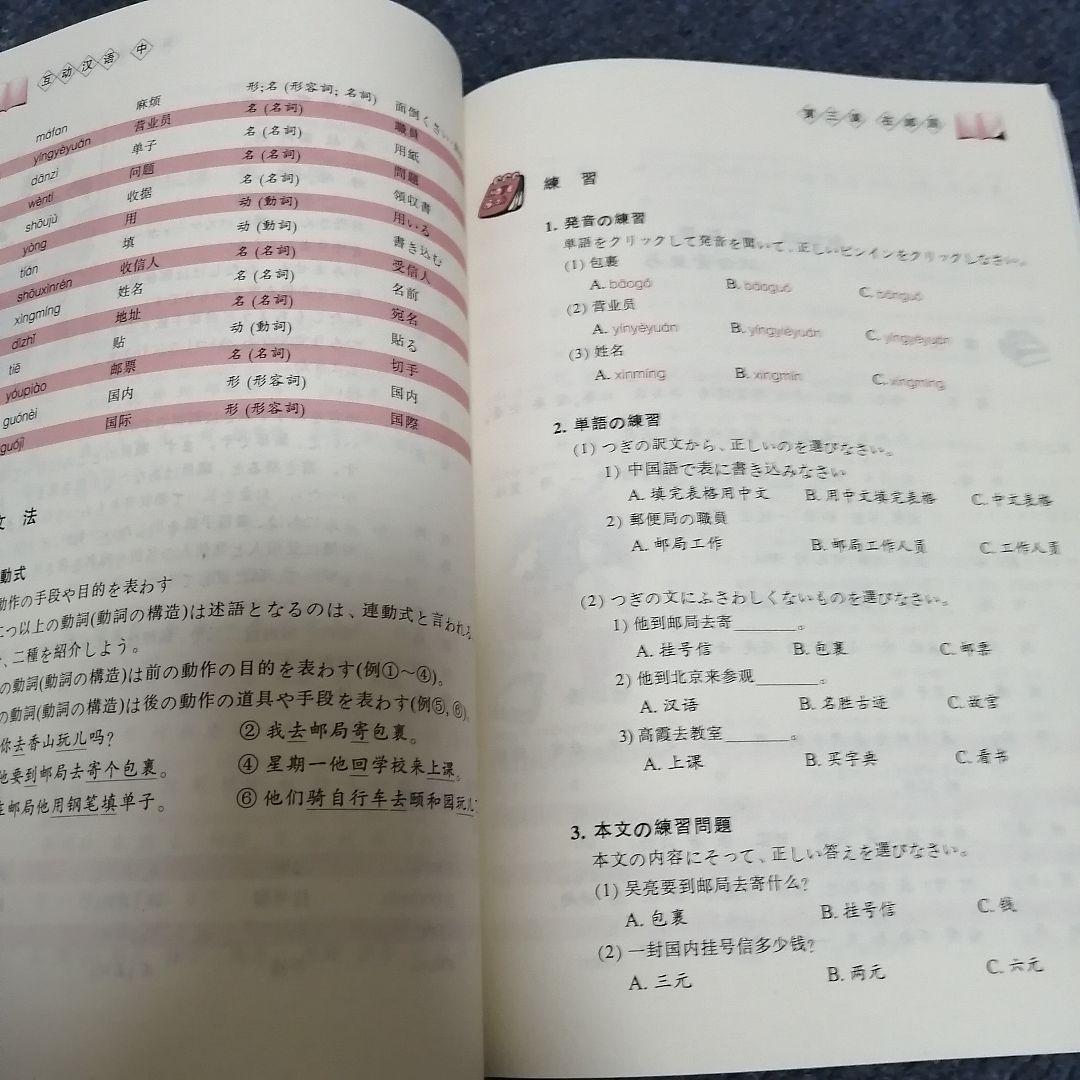 互动汉语 中
máfan 麻烦 形;名 (形容詞; 名詞) 面倒くさい
yíngyèyuán 营业员 名 (名詞) 職員
dānzi 单子 名 (名詞) 用紙
wèntí 问题 名 (名詞) 問題
shōujù 收据 名 (名詞) 領収書
yòng 用 动 (動詞) 用いる
tián 填 动 (動詞) 書き込む
shōuxìnrén 收信人 名 (名詞) 受信人
xìngmíng 姓名 名 (名詞) 名前
dìzhǐ 地址 名 (名詞) 宛名
tiē 贴 动 (動詞) 貼る
yóupiào 邮票 名 (名詞) 切手
guónèi 国内 形 (形容詞) 国内
guójì 国际 形 (形容詞) 国際
文 法
動式
動作の手段や目的を表わす
二つ以上の動詞(動詞の構造)は述語となるのは、連動式と言われる
、二種を紹介しよう。
の動詞(動詞の構造)は前の動作の目的を表わす(例①～④)。
の動詞(動詞の構造)は後の動作の道具や手段を表わす(例⑤,⑥)。
你去香山玩儿吗? ② 我去邮局寄包裹。
他要到邮局去寄个包裹。 ④ 星期一他回学校来上课。
在邮局他用钢笔填单子。 ⑥ 他们骑自行车去颐和园玩儿
第三课 在邮局
練 習
1. 発音の練習
単語をクリックして発音を聞いて、正しいピンインをクリックしなさい。
(1) 包裹
A. bāogǒ B. bāoguǒ C.
(2) 营业员
A. yínyèyuán B. yíngyièyuán C. yíngyèyuán
(3) 姓名
A. xìnmíng B. xìngmín C. xìngmíng
2. 単語の練習
(1) つぎの訳文から、正しいのを選びなさい。
1) 中国語で表に書き込みなさい
A. 填完表格用中文 B. 用中文填完表格 C. 中文表格
2) 郵便局の職員
A. 邮局工作 B. 邮局工作人员 C. 工作人员
(2) つぎの文にふさわしくないものを選びなさい。
1) 他到邮局去寄________。
A. 挂号信 B. 包裹 C. 邮票
2) 他到北京来参观________。
A. 汉语 B. 名胜古迹 C. 故宫
3) 高霞去教室________。
A. 上课 B. 买字典 C. 看书
3. 本文の練習問題
本文の内容にそって、正しい答えを選びなさい。
(1) 吴亮要到邮局去寄什么?
A. 包裹 B. 挂号信 C. 钱
(2) 一封国内挂号信多少钱?
A. 三元 B. 两元 C. 六元